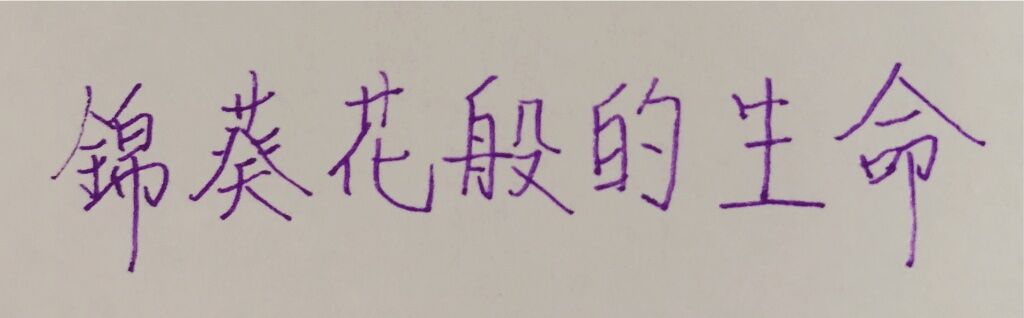 錦葵花般的生命